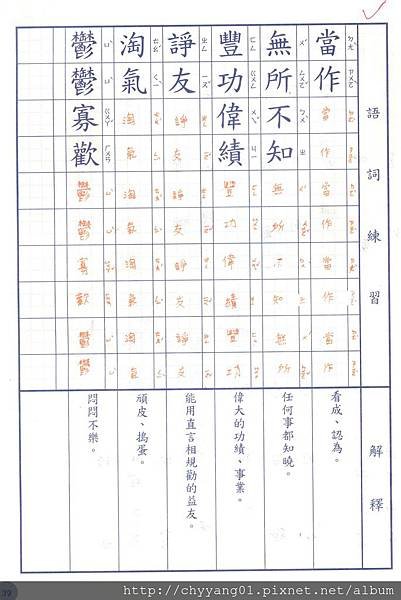 語詞練習
解釋
當作
看成、認為。
無所不知
任何事都知曉。
豐功偉績
偉大的功績、事業。
諍友
能用直言相規勸的益友。
淘氣
頑皮、搗蛋。
鬱鬱寡歡
悶悶不樂。
當作當作當作當作
無所不知無所
豐功偉績豐功
諍友諍友諍友諍友
淘氣淘氣淘氣淘氣
鬱鬱寡歡鬱鬱
39
http://chyyang01.pixnet.net/album